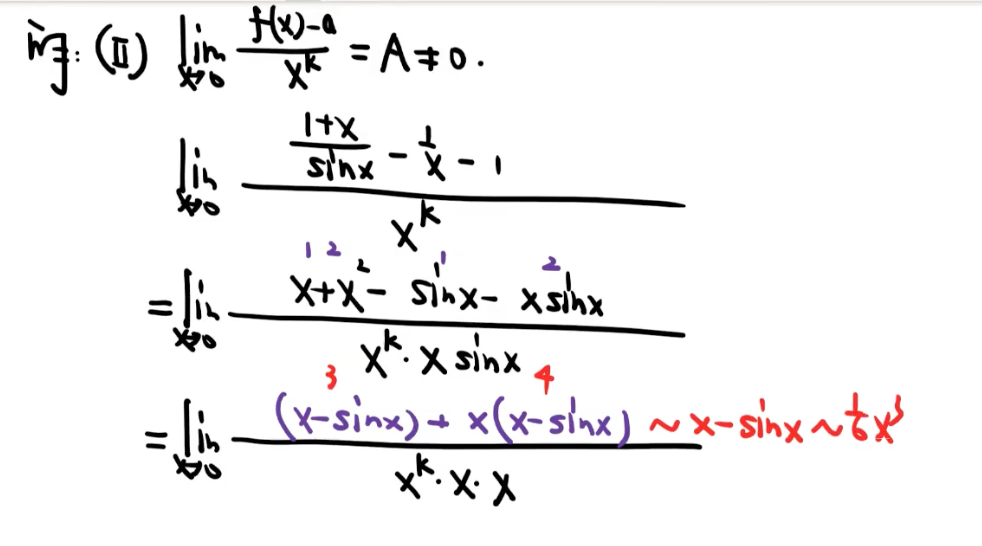 (Ⅱ) lim x→0 (f(x)-a)/(x^k) = A≠0.
lim x→0 ((1+x)/(sinx) - 1/x - 1)/(x^k)
1 2 1 2
= lim x→0 (x+x^2 - sinx - xsinx)/(x^k · x sinx)
3 4
= lim x→0 ((x-sinx) + x(x-sinx))/(x^k · x · x) ~ x-sinx ~ 1/6 x^3